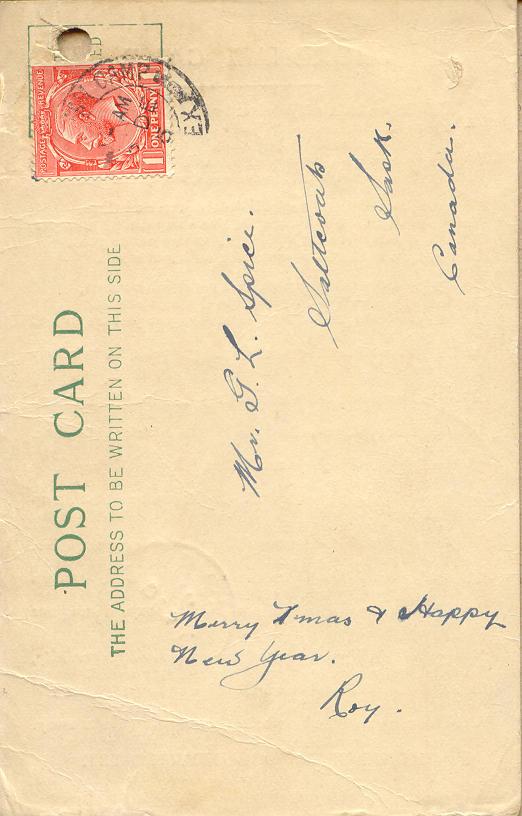 POST CARD
THE ADDRESS TO BE WRITTEN ON THIS SIDE
POSTAGE REVENUE
ONE PENNY
1 1
AM
EX
Mr. G. L. Spice.
Saltcoats
Sask.
Canada.
Merry Xmas & Happy
New Year.
Roy.